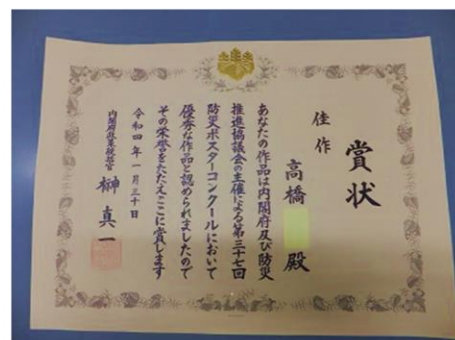 賞状
佳作
高橋 殿
あなたの作品は内閣府及び防災
推進協議会の主催による第三十七回
防災ポスターコンクールにおいて
優秀な作品と認められましたので
その栄誉をたたえここに賞します
令和四年一月三十日
内閣府政策統括官
榊真一